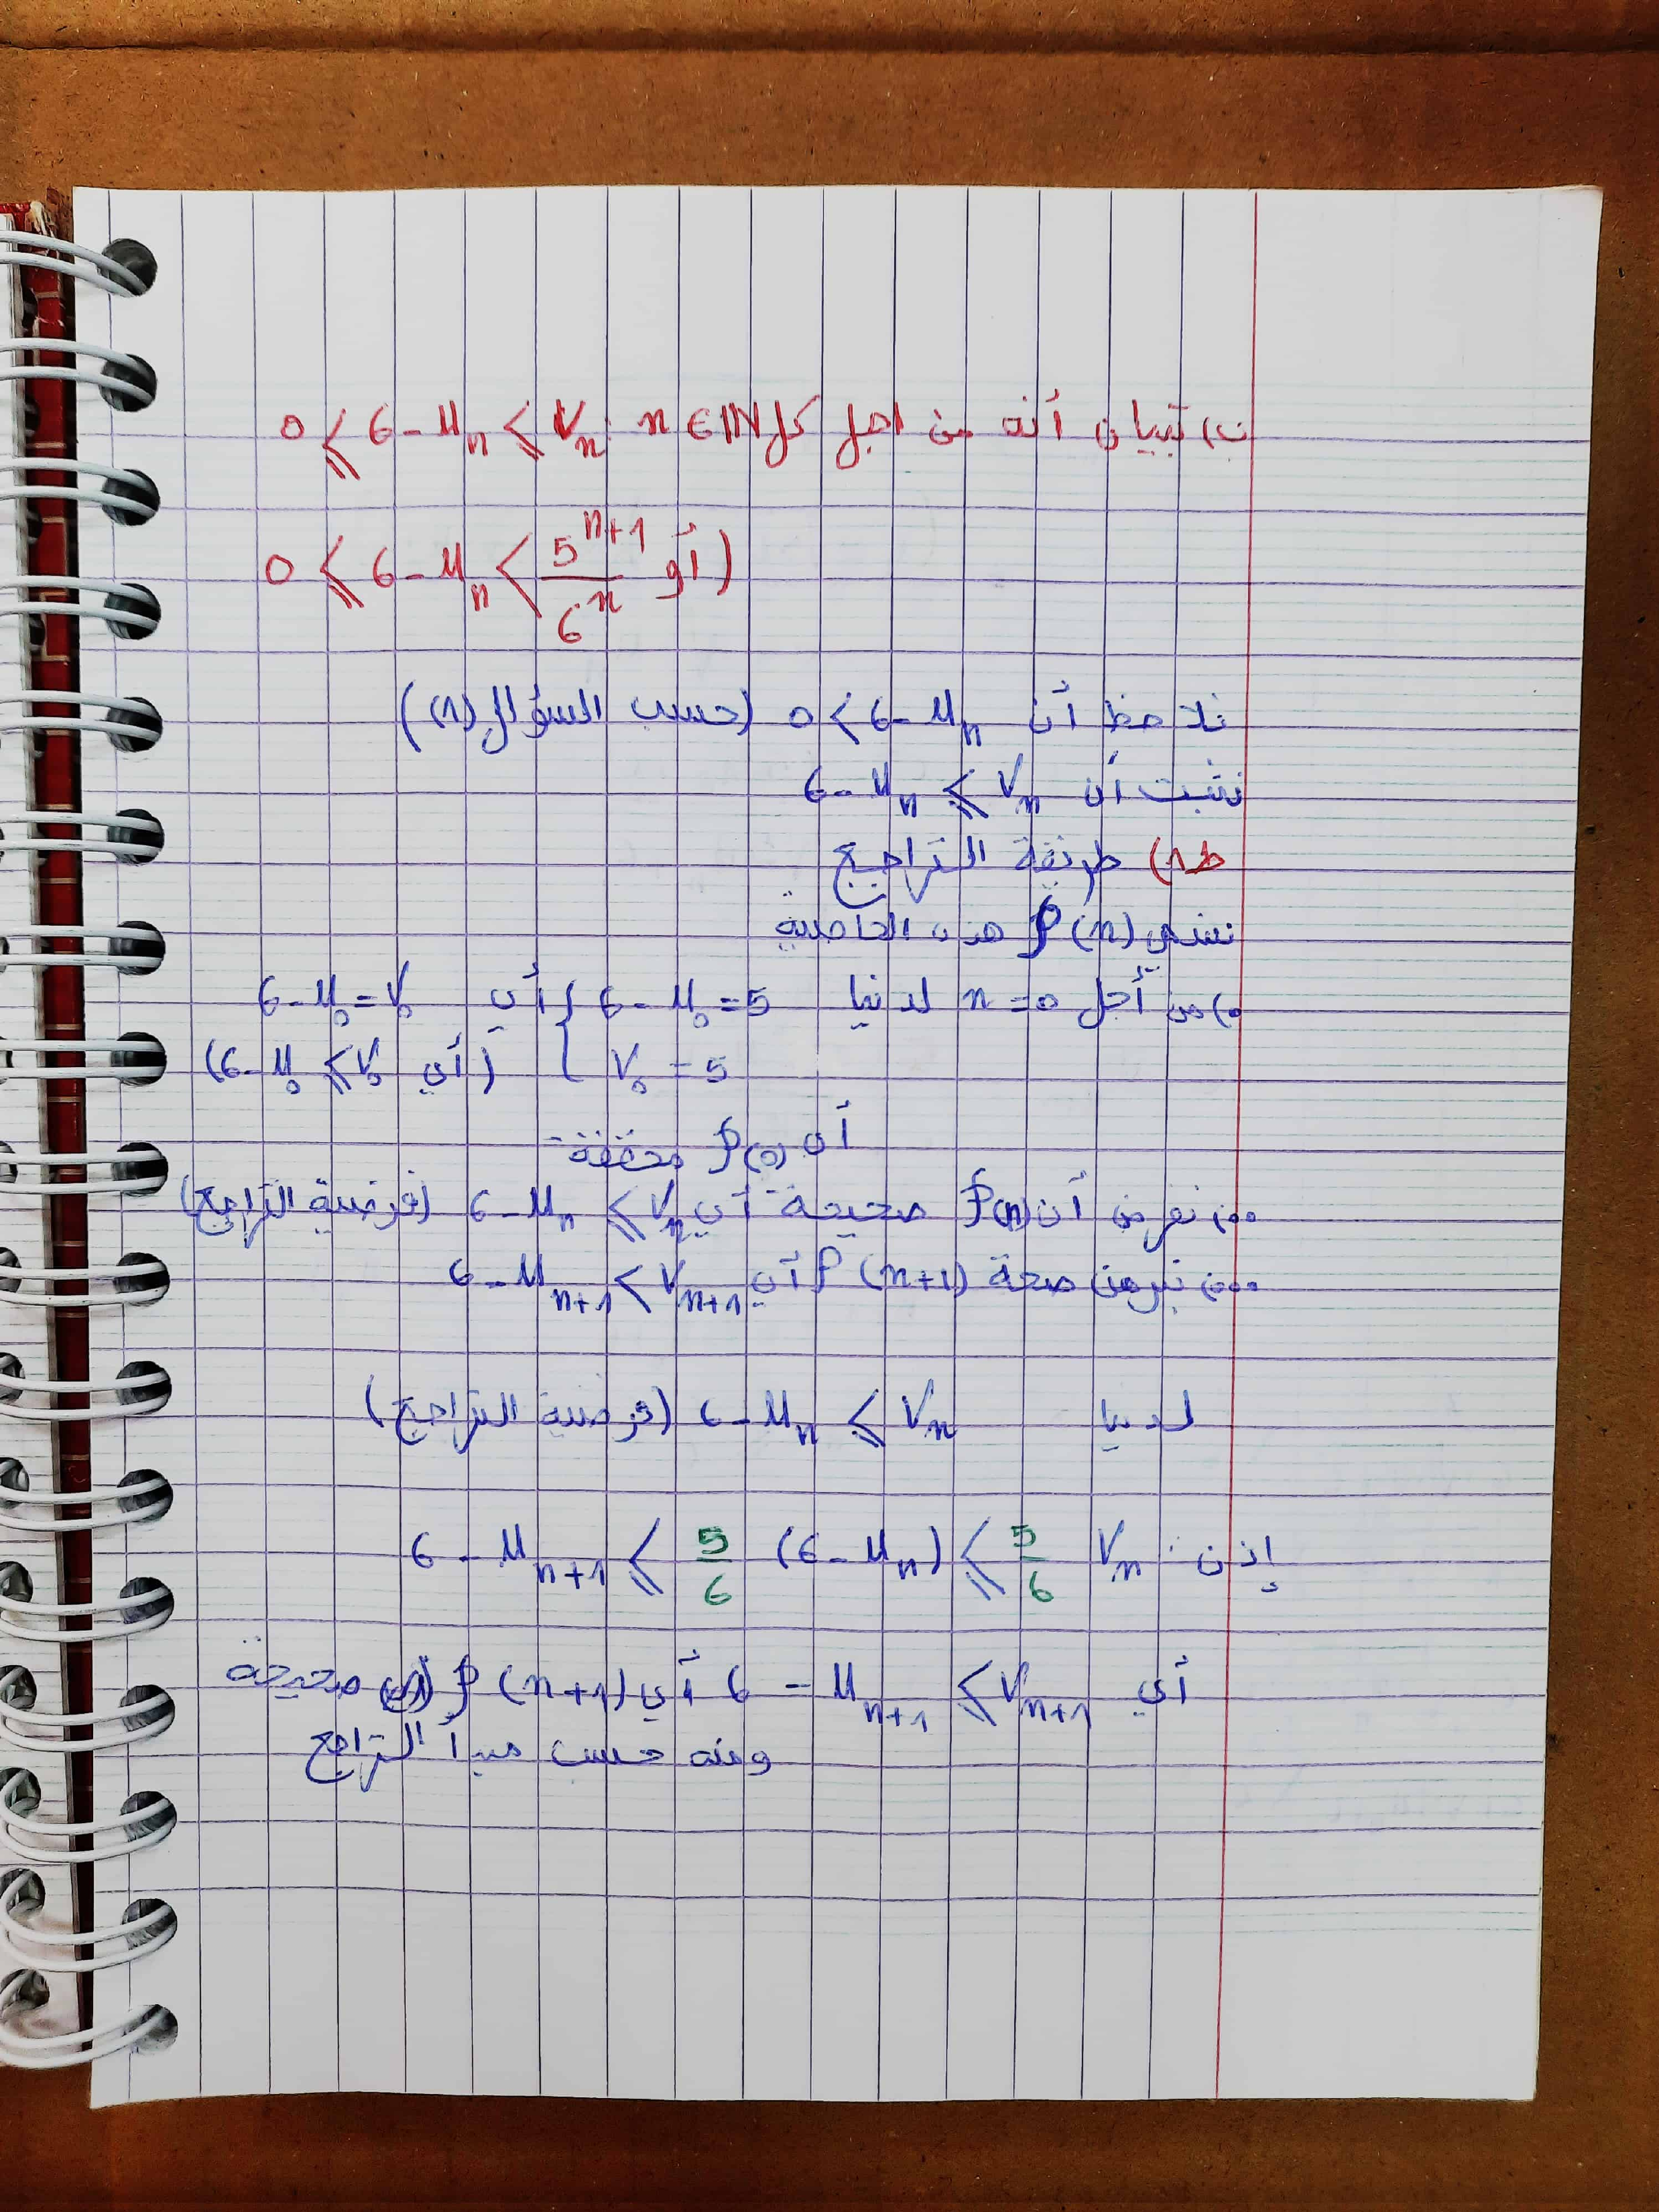 ب) تبيان أنه من اجل كل n ∈ ℕ : 0 ⩽ 6 - u_n ⩽ V_n
(أو 0 ⩽ 6 - u_n < 5^{n+1}/6^n)
نلاحظ أن 0 < 6 - u_n (حسب السؤال (1))
نثبت أن 6 - u_n ⩽ V_n
ط1) طريقة التراجع
نسمي P(n) هذه الخاصية
•) من أجل n = 0 لدينا { 6 - u_0 = 5 أي 6 - u_0 = V_0
V_0 = 5 (أي 6 - u_0 ⩽ V_0)
أي P(0) محققة
••) نفرض أن P(n) صحيحة أي 6 - u_n ⩽ V_n (فرضية التراجع)
•••) نبرهن صحة P(n+1) أي 6 - u_{n+1} < V_{n+1}
لدينا 6 - u_n ⩽ V_n (فرضية التراجع)
إذن : 6 - u_{n+1} ⩽ 5/6 (6 - u_n) ⩽ 5/6 V_n
أي 6 - u_{n+1} ⩽ V_{n+1} أي P(n+1) صحيحة
ومنه حسب مبدأ التراجع